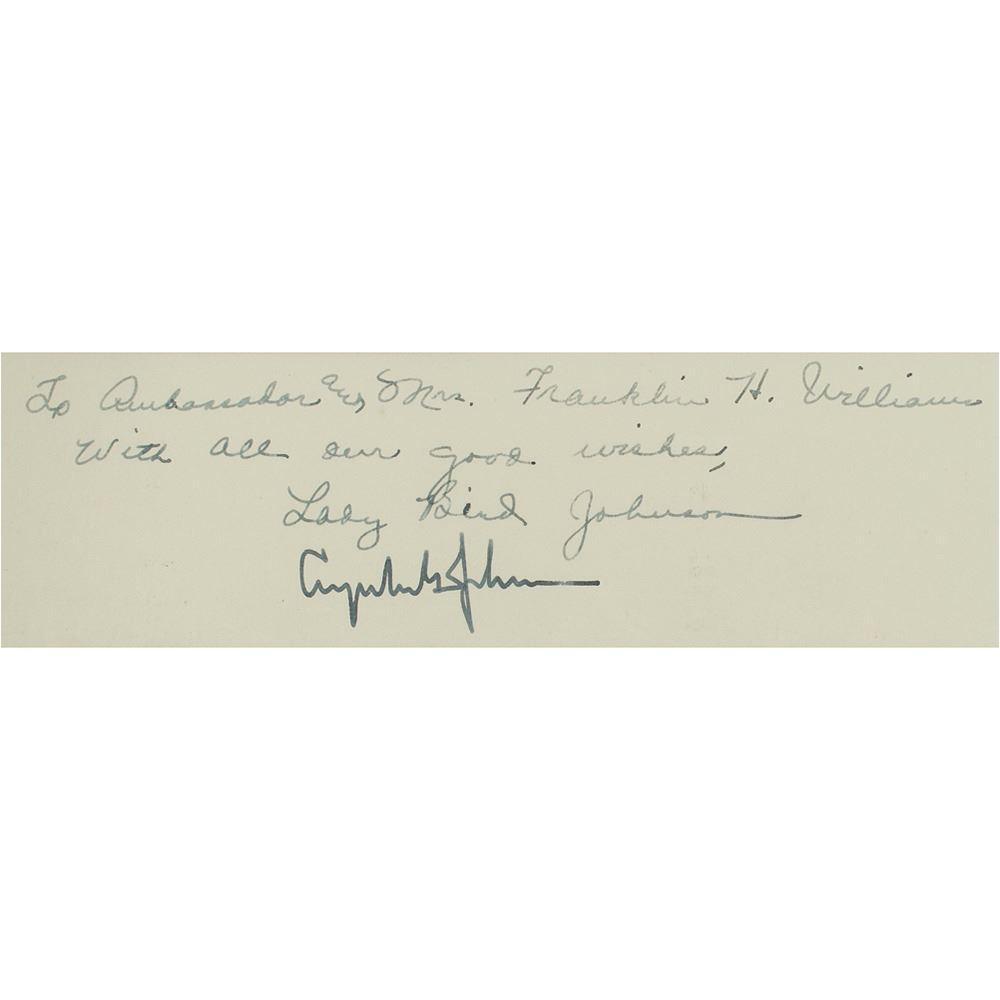 To Ambassador & Mrs. Franklin H. Williams
With all our good wishes,
Lady Bird Johnson
Lyndon B. Johnson